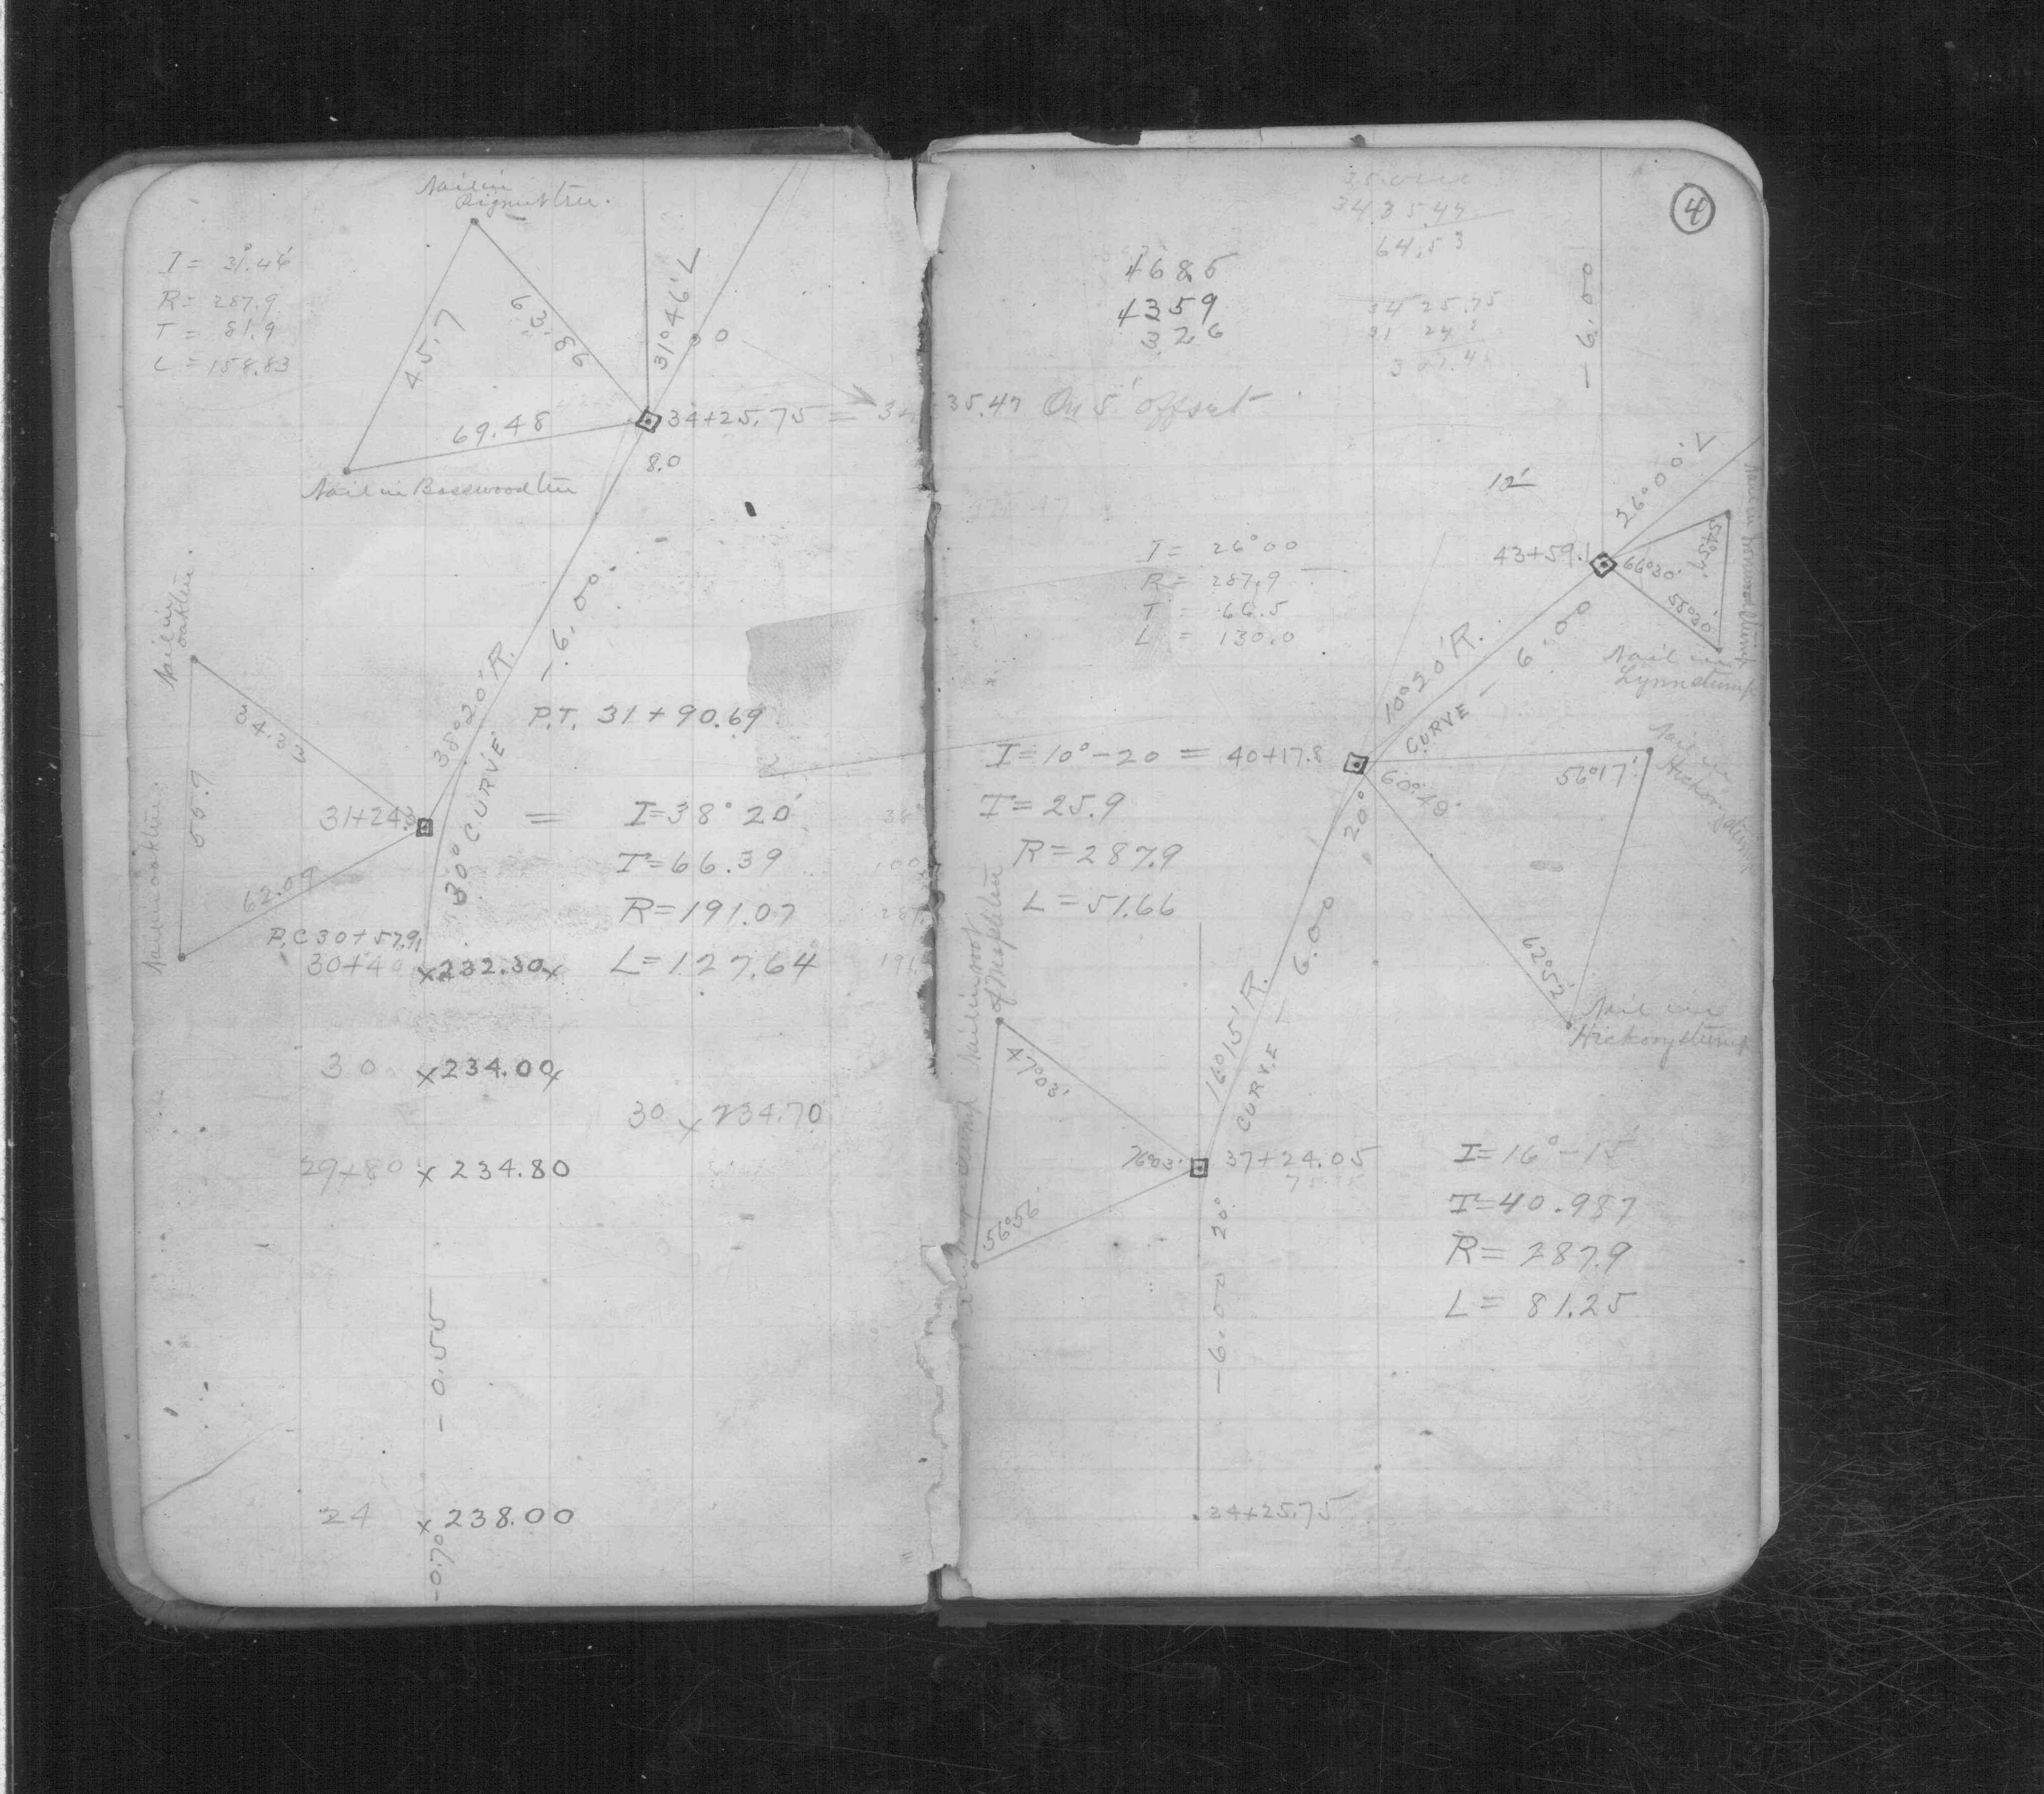 Nail in
Pignut tree.
I = 31°.46'
R = 287.9
T = 81.9
L = 158.83
45.7
63.86
31°46' L
69.48
34+25.75 =
35.47 On 5' offset
8.0
Nail in Basswood tree
Nail in
oak tree.
-6.00.
38°20' R.
P.T. 31+90.69
34.33
55.9
31+24.3
30° CURVE
=
I=38° 20'
T=66.39
62.09
R=191.07
P.C 30+57.91
30+40 x232.30x
L=127.64
30 x234.00x
30 x 234.70
29+80 x 234.80
-0.55
24 x 238.00
-0.70
4
3435.47
64.53
4685
4359
326
3425.75
31 24 3
-6.00
26°00' L
12'
43+59.1
66°30'
55°20'
Nail in
Lynn stump
I = 26°00
R = 287.9
T = 66.5
L = 130.0
10°20' R.
CURVE - 6.00
I=10°-20 = 40+17.8
T=25.9
R=287.9
L=51.66
60°49'
56°17'
Nail in
Hickory stump
20°
62°52'
Nail in
Hickory stump
6.00
Nail in root
of Maple tree
16°15' R.
CURVE -
47°03'
76°03'
37+24.05
56°56'
20°
-6.00
I=16°-15'
T=40.987
R=287.9
L=81.25
34+25.75